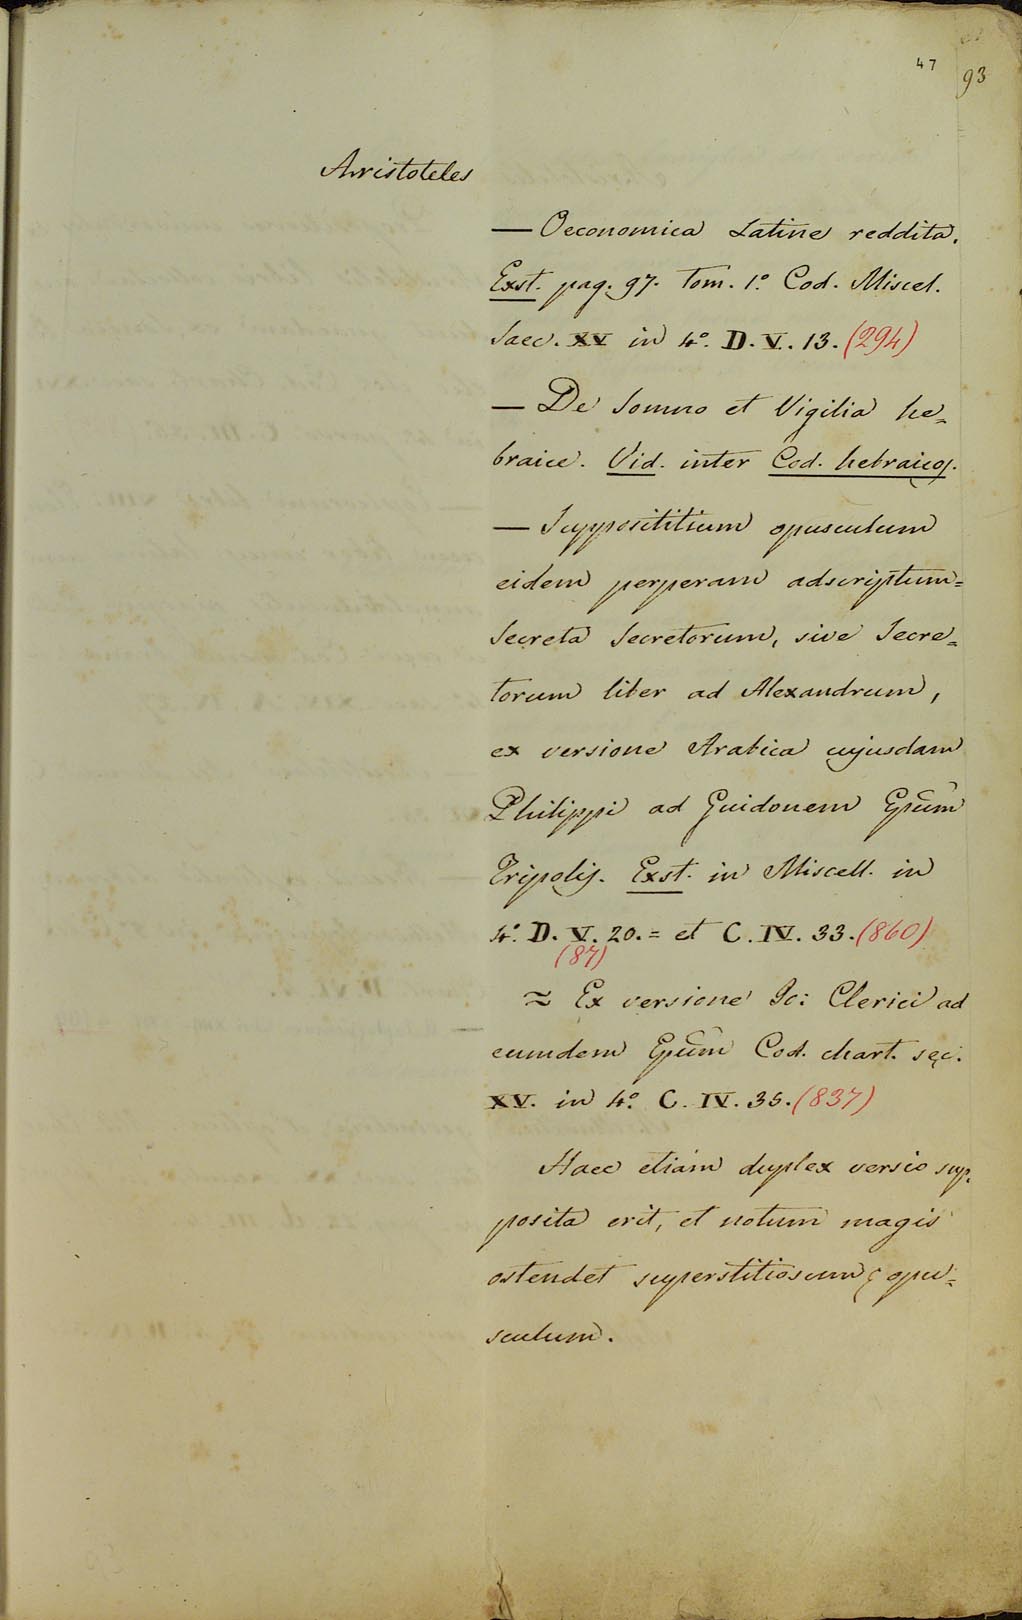 47
93
Aristoteles
— Oeconomica Latine reddita.
Exst. pag. 97. tom. 1.º Cod. Miscel.
Saec. XV in 4.º D. V. 13. (294)
— De Somno et Vigilia he=
braice. Vid. inter Cod. hebraicos.
— Supposititium opusculum
eidem perperam adscriptum=
Secreta Secretorum, sive Secre=
torum liber ad Alexandrum,
ex versione Arabica cujusdam
Philippi ad Guidonem Epũm
Tripolis. Exst. in Miscell. in
4.º D. V. 20. = et C. IV. 33. (860)
(87)
≈ Ex versione Jo: Clerici ad
eumdem Epũm Cod. chart. sęc.
XV. in 4.º C. IV. 35. (837)
Haec etiam duplex versio sup=
posita erit, et notum magis
ostendet superstitiosum opu=
sculum.